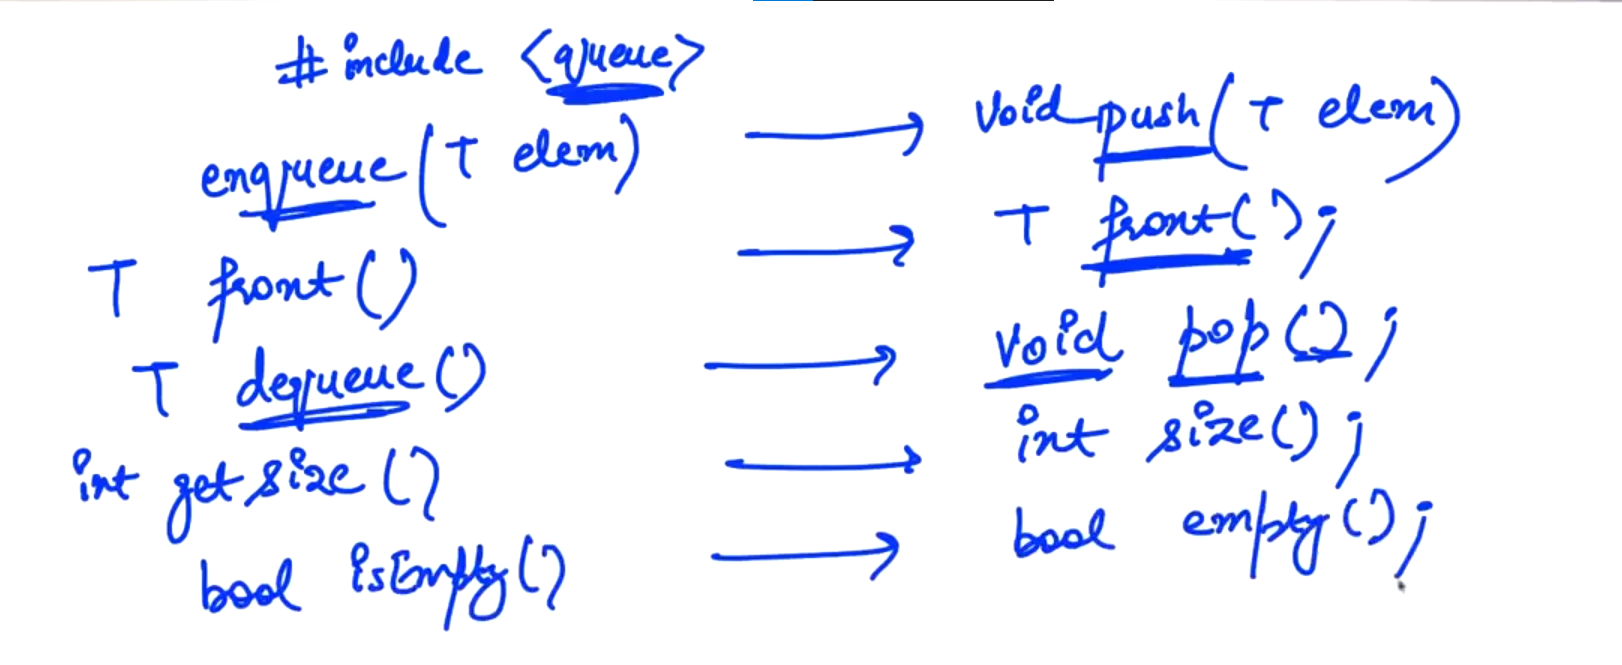 # include <queue>
enqueue (T elem) → void push (T elem)
T front () → T front ();
T dequeue () → void pop ();
int getsize () → int size ();
bool isEmpty () → bool empty ();